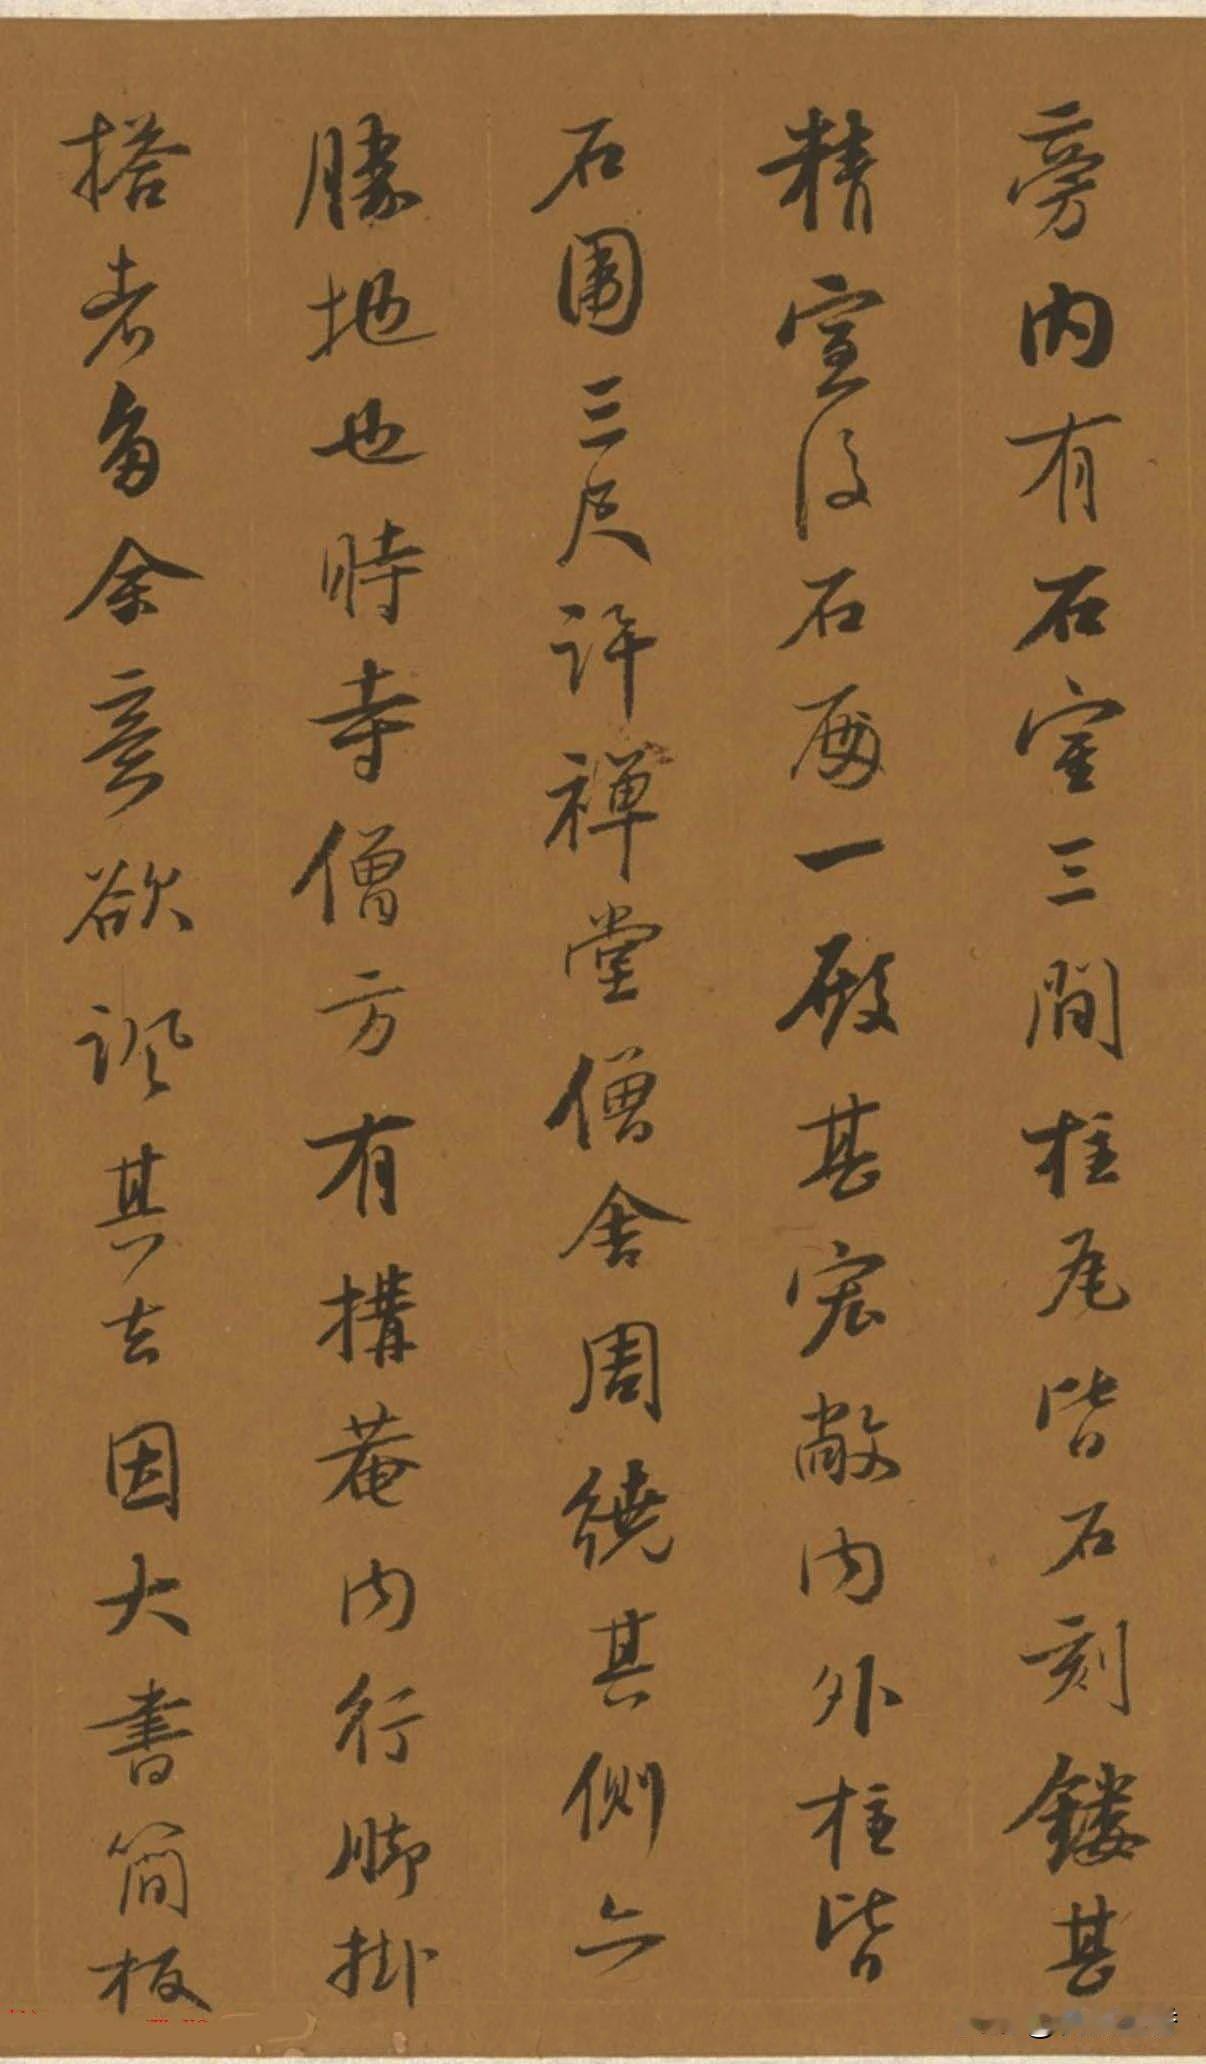 旁内有石室三間柱瓦皆石刻鏤甚
精室後石砌一殿甚宏敞内外柱皆
石圍三尺許禪堂僧舍周繞其側亦
勝地也時寺僧方有構菴内行脚掛
搭者多余意欲諷其去因大書簡板